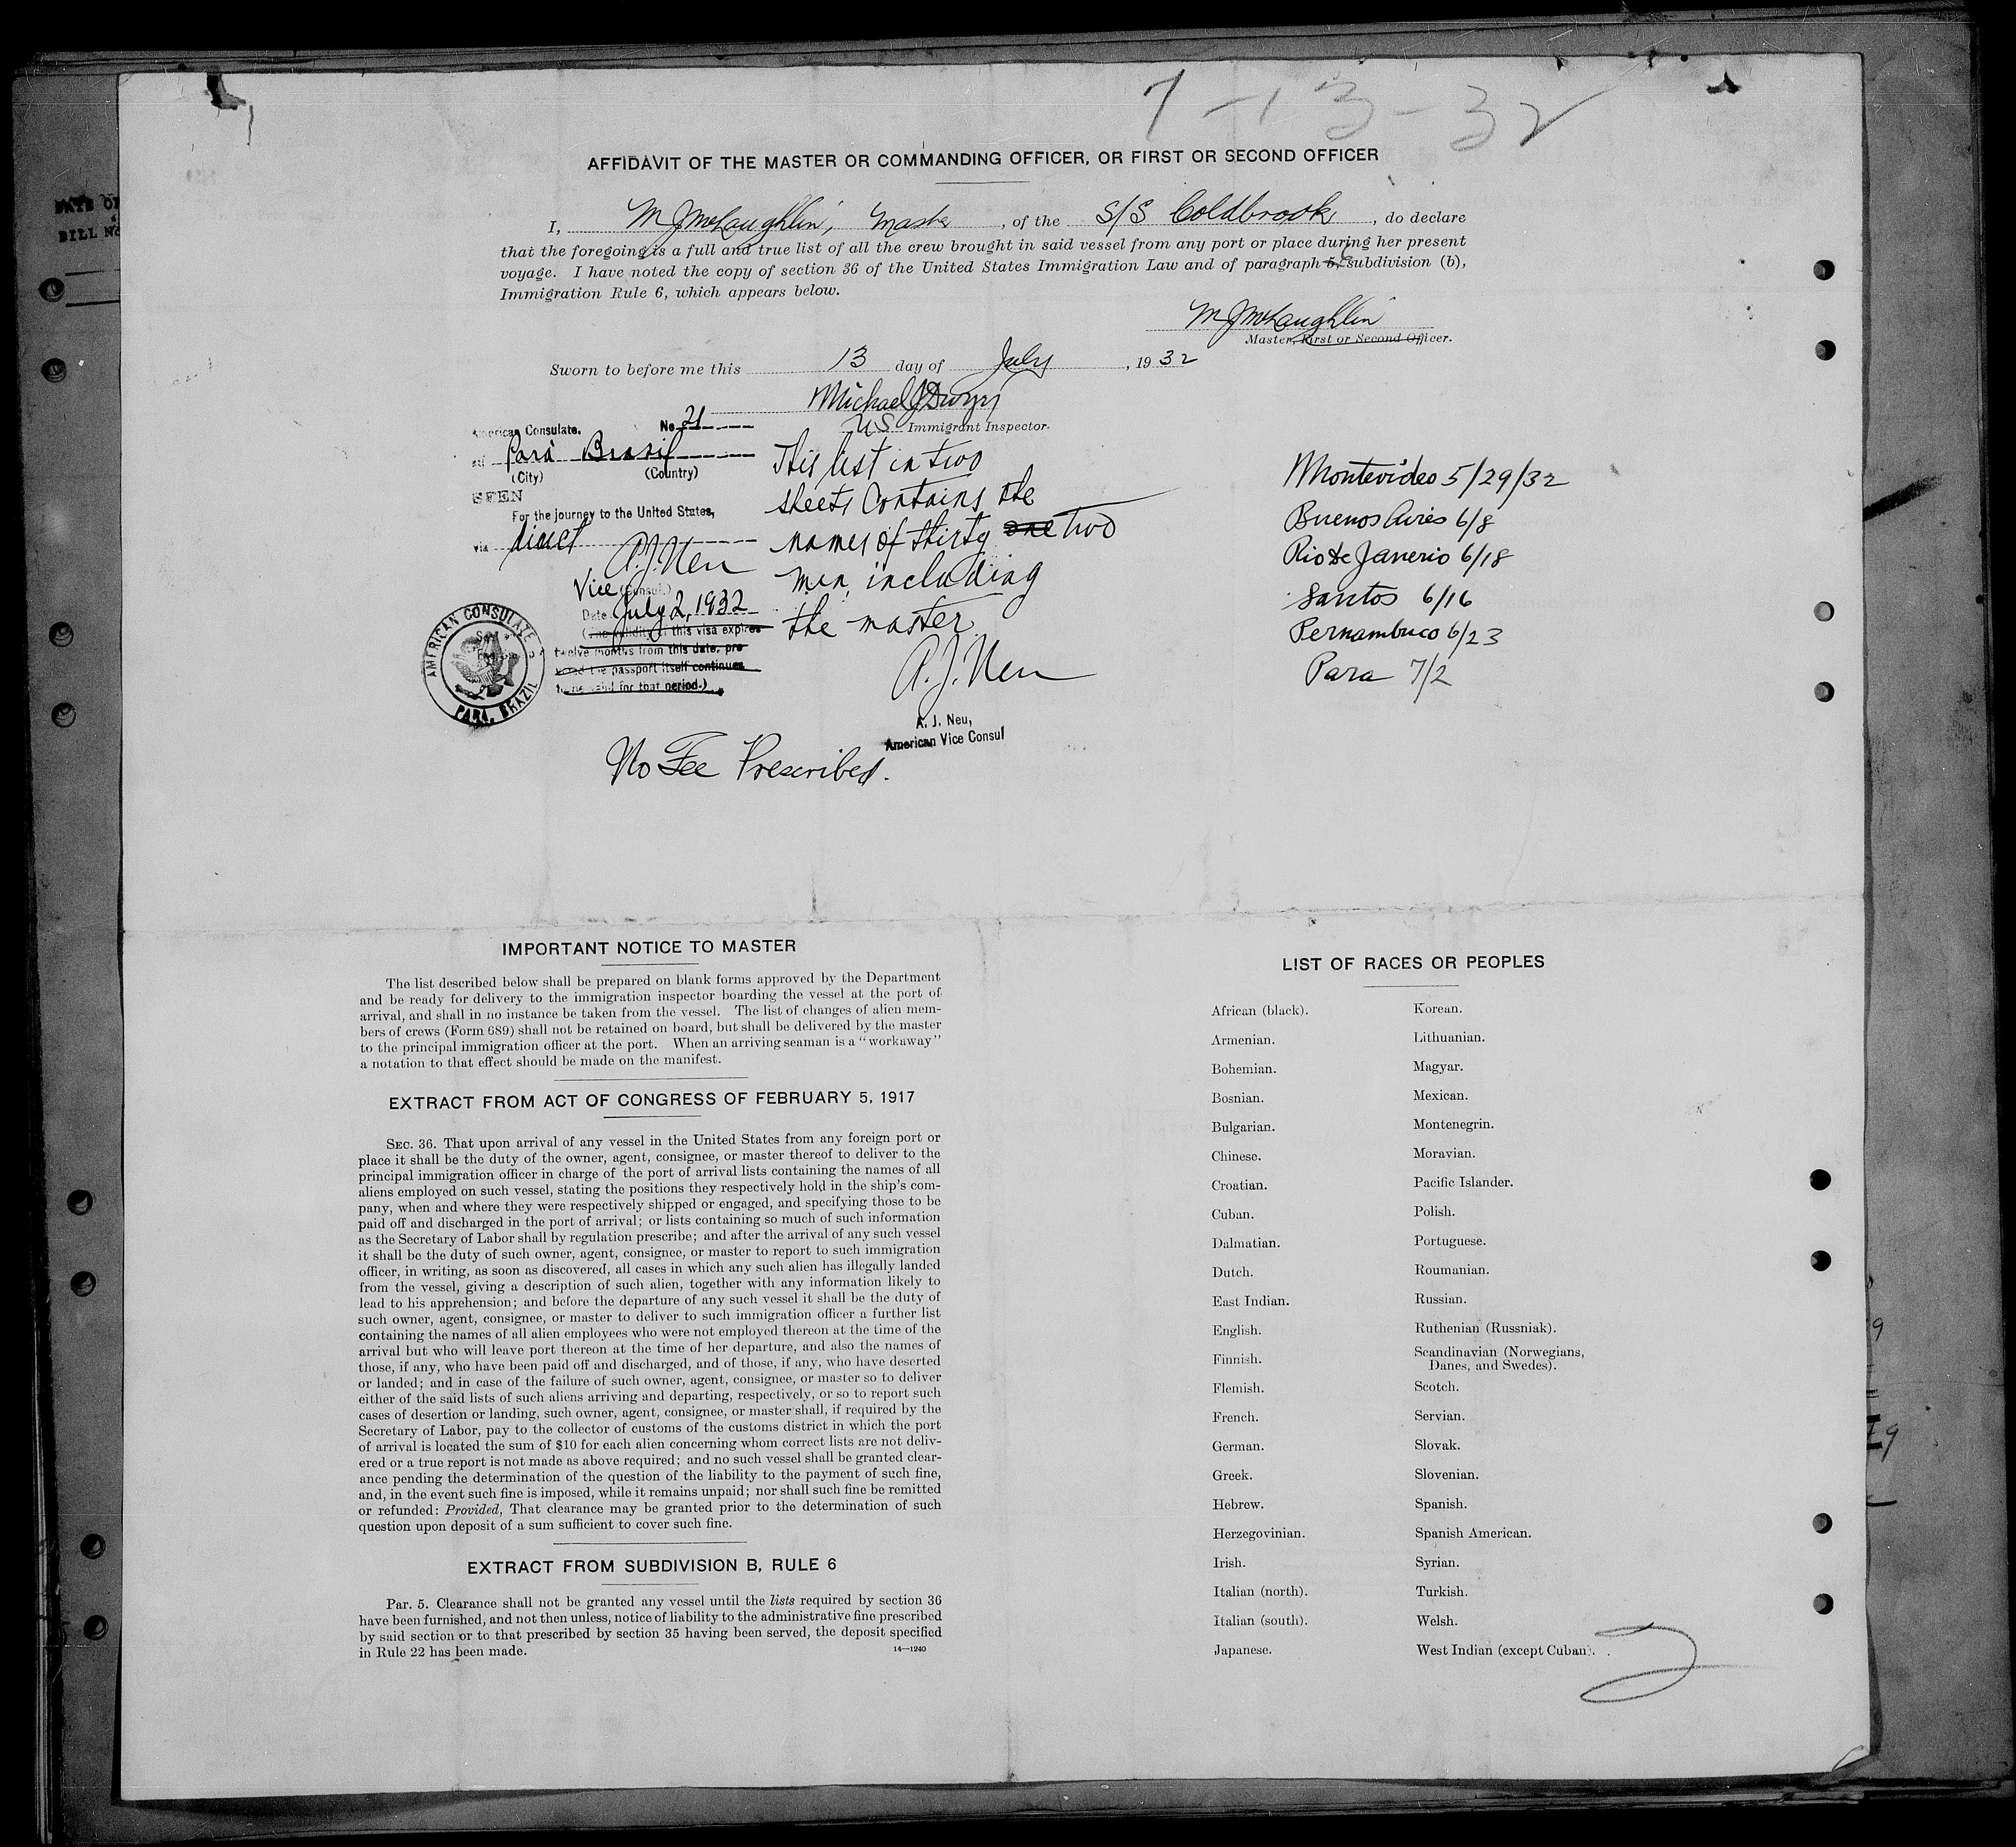 7-13-32
AFFIDAVIT OF THE MASTER OR COMMANDING OFFICER, OR FIRST OR SECOND OFFICER
I, M J McLaughlin, Master, of the S/S Coldbrook, do declare
that the foregoing is a full and true list of all the crew brought in said vessel from any port or place during her present
voyage. I have noted the copy of section 36 of the United States Immigration Law and of paragraph 5, subdivision (b),
Immigration Rule 6, which appears below.
M J McLaughlin
Master, First or Second Officer.
Sworn to before me this 13 day of July, 1932
Michael J Dwyer
US Immigrant Inspector.
American Consulate. No. 21
at Pará Brasil
(City) (Country)
SEEN
For the journey to the United States,
via direct
A. J. Neu
Vice (Consul.)
Date July 2, 1932
(The validity of this visa expires
twelve months from this date, pro
vided the passport itself continues
to be valid for that period.)
AMERICAN CONSULATE
PARA, BRAZIL
This list in two
sheets contains the
names of thirty one two
men, including
the master
A. J. Neu
A. J. Neu,
American Vice Consul
No Fee Prescribed.
Montevideo 5/29/32
Buenos Aires 6/8
Rio de Janerio 6/18
Santos 6/16
Pernambuco 6/23
Para 7/2
DATE OF
BILL NO
IMPORTANT NOTICE TO MASTER
The list described below shall be prepared on blank forms approved by the Department
and be ready for delivery to the immigration inspector boarding the vessel at the port of
arrival, and shall in no instance be taken from the vessel. The list of changes of alien mem-
bers of crews (Form 689) shall not be retained on board, but shall be delivered by the master
to the principal immigration officer at the port. When an arriving seaman is a "workaway"
a notation to that effect should be made on the manifest.
EXTRACT FROM ACT OF CONGRESS OF FEBRUARY 5, 1917
SEC. 36. That upon arrival of any vessel in the United States from any foreign port or
place it shall be the duty of the owner, agent, consignee, or master thereof to deliver to the
principal immigration officer in charge of the port of arrival lists containing the names of all
aliens employed on such vessel, stating the positions they respectively hold in the ship's com-
pany, when and where they were respectively shipped or engaged, and specifying those to be
paid off and discharged in the port of arrival; or lists containing so much of such information
as the Secretary of Labor shall by regulation prescribe; and after the arrival of any such vessel
it shall be the duty of such owner, agent, consignee, or master to report to such immigration
officer, in writing, as soon as discovered, all cases in which any such alien has illegally landed
from the vessel, giving a description of such alien, together with any information likely to
lead to his apprehension; and before the departure of any such vessel it shall be the duty of
such owner, agent, consignee, or master to deliver to such immigration officer a further list
containing the names of all alien employees who were not employed thereon at the time of the
arrival but who will leave port thereon at the time of her departure, and also the names of
those, if any, who have been paid off and discharged, and of those, if any, who have deserted
or landed; and in case of the failure of such owner, agent, consignee, or master so to deliver
either of the said lists of such aliens arriving and departing, respectively, or so to report such
cases of desertion or landing, such owner, agent, consignee, or master shall, if required by the
Secretary of Labor, pay to the collector of customs of the customs district in which the port
of arrival is located the sum of $10 for each alien concerning whom correct lists are not deliv-
ered or a true report is not made as above required; and no such vessel shall be granted clear-
ance pending the determination of the question of the liability to the payment of such fine,
and, in the event such fine is imposed, while it remains unpaid; nor shall such fine be remitted
or refunded: Provided, That clearance may be granted prior to the determination of such
question upon deposit of a sum sufficient to cover such fine.
EXTRACT FROM SUBDIVISION B, RULE 6
Par. 5. Clearance shall not be granted any vessel until the lists required by section 36
have been furnished, and not then unless, notice of liability to the administrative fine prescribed
by said section or to that prescribed by section 35 having been served, the deposit specified
in Rule 22 has been made.
14—1240
LIST OF RACES OR PEOPLES
African (black). Korean.
Armenian. Lithuanian.
Bohemian. Magyar.
Bosnian. Mexican.
Bulgarian. Montenegrin.
Chinese. Moravian.
Croatian. Pacific Islander.
Cuban. Polish.
Dalmatian. Portuguese.
Dutch. Roumanian.
East Indian. Russian.
English. Ruthenian (Russniak).
Finnish. Scandinavian (Norwegians,
Danes, and Swedes).
Flemish. Scotch.
French. Servian.
German. Slovak.
Greek. Slovenian.
Hebrew. Spanish.
Herzegovinian. Spanish American.
Irish. Syrian.
Italian (north). Turkish.
Italian (south). Welsh.
Japanese. West Indian (except Cuban).
2